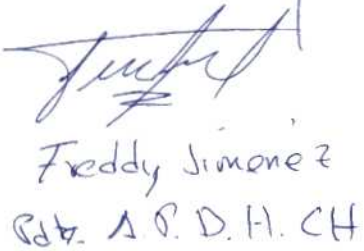 Freddy Jimenez
Pdte. A.P.D.H. CH